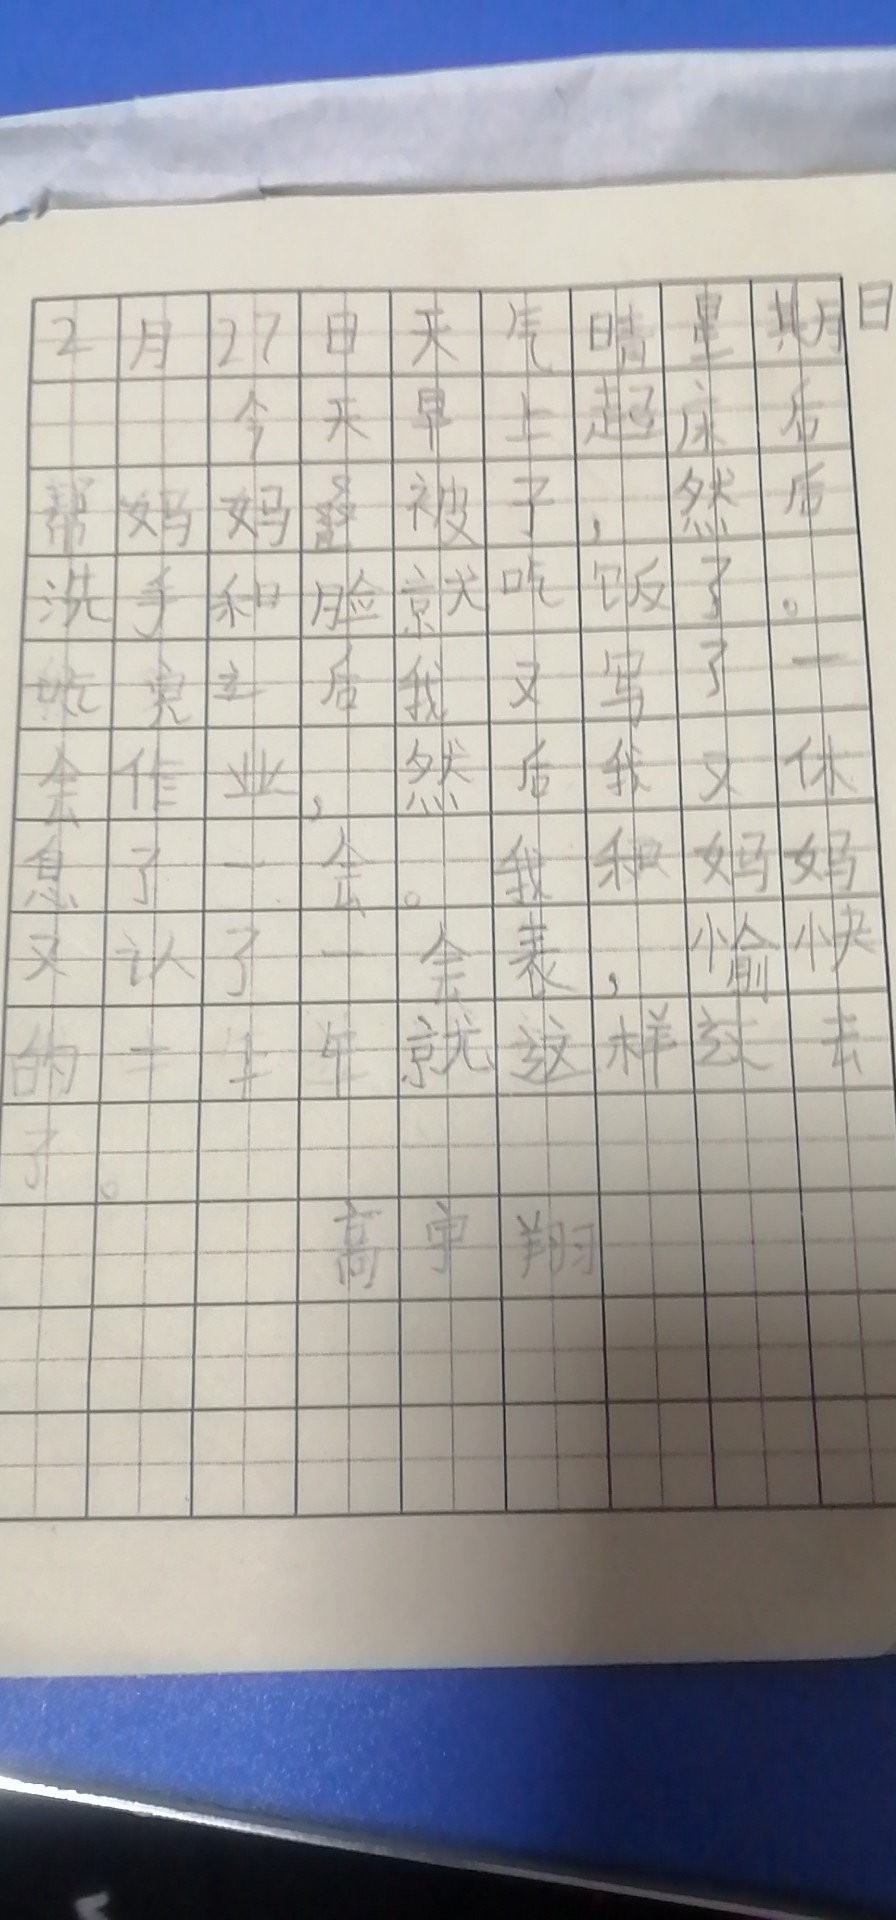 2月27日天气晴星期日
今天早上起床后
帮妈妈叠被子，然后
洗手和脸就吃饭了。
吃完之后我又写了一
会作业，然后我又休
息了一会。我和妈妈
又认了一会表，愉快
的一上午就这样过去
了。
高宇翔